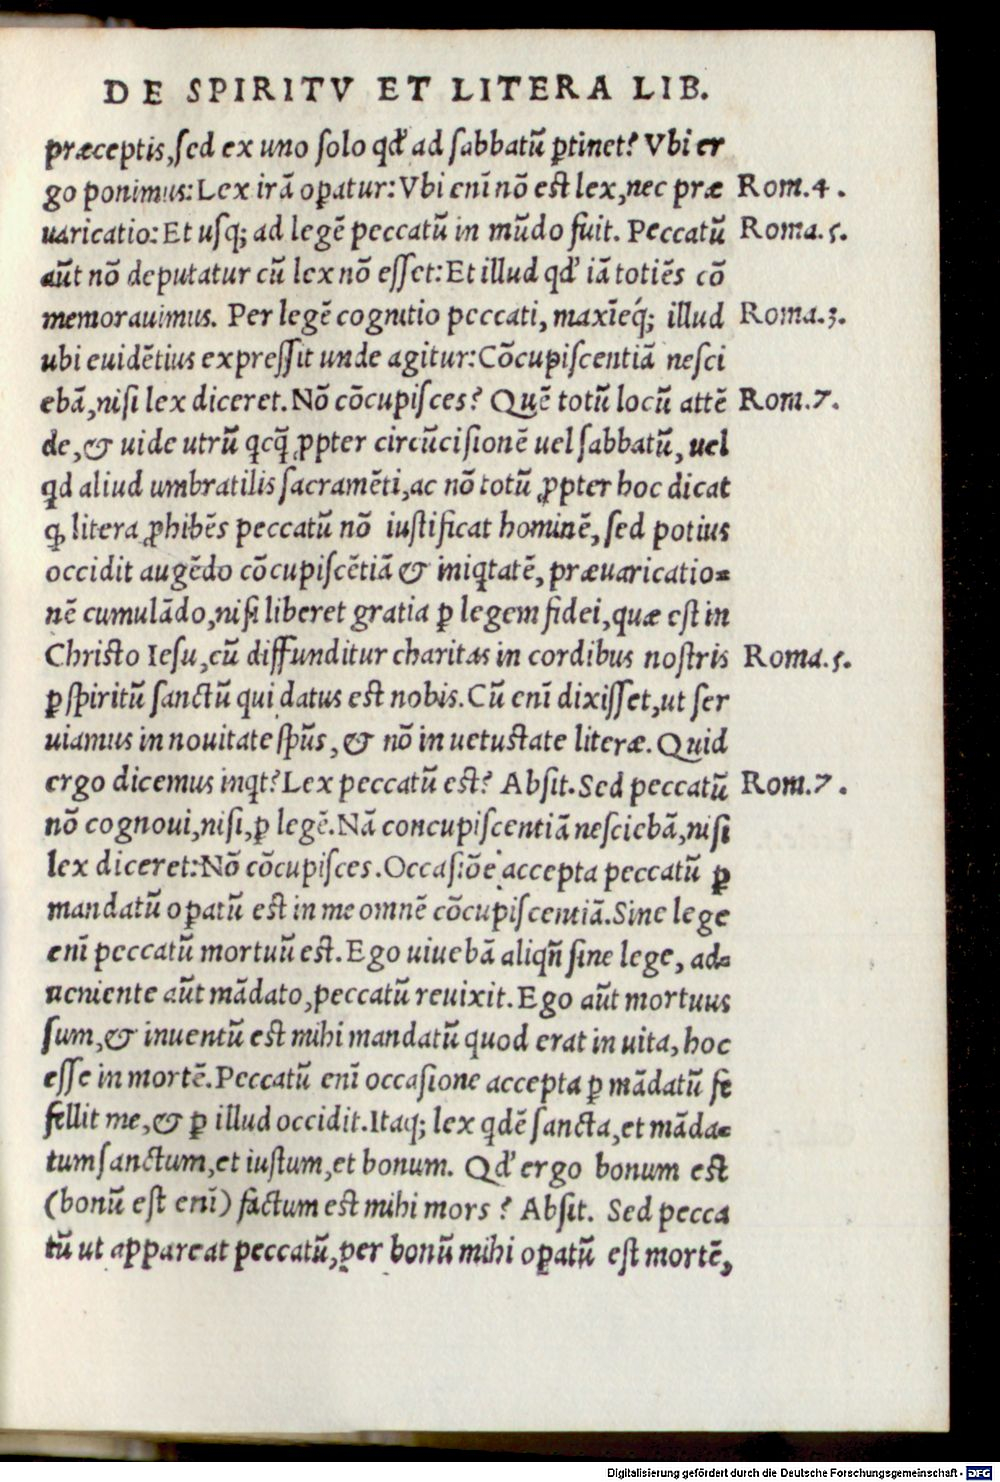 DE SPIRITV ET LITERA LIB.
præceptis, ſed ex uno ſolo qđ ad ſabbatū ꝑtinet? Vbi er
go ponimus: Lex irā oꝑatur: Vbi enī nō eſt lex, nec præ Rom.4.
uaricatio: Et uſq; ad legē peccatū in mūdo fuit. Peccatū Roma.5.
aūt nō deputatur cū lex nō eſſet: Et illud qđ iā totiēs cō
memorauimus. Per legē cognitio peccati, maxīeq́; illud Roma.3.
ubi euidētius expreſſit unde agitur: Cōcupiſcentiā neſci
ebā, niſi lex diceret. Nō cōcupiſces? Quē totū locū attē Rom.7.
de, & uide utrū qcq̄ ꝓpter circūciſionē uel ſabbatū, uel
qd aliud umbratilis ſacramēti, ac nō totū ꝓpter hoc dicat
ꝙ litera ꝓhibēs peccatū nō iuſtificat hominē, ſed potius
occidit augēdo cōcupiſcētiā & iniqtatē, præuaricatio=
nē cumulādo, niſi liberet gratia ꝑ legem fidei, quæ eſt in
Chriſto Ieſu, cū diffunditur charitas in cordibus noſtris Roma.5.
ꝑ ſpiritū ſanctū qui datus eſt nobis. Cū enī dixiſſet, ut ſer
uiamus in nouitate ſpūs, & nō in uetuſtate literæ. Quid
ergo dicemus inqt? Lex peccatū eſt? Abſit. Sed peccatū Rom.7.
nō cognoui, niſi, ꝑ legē. Nā concupiſcentiā neſciebā, niſi
lex diceret: Nō cōcupiſces. Occaſiōe accepta peccatū ꝑ
mandatū oꝑatū eſt in me omnē cōcupiſcentiā. Sine lege
enī peccatū mortuū eſt. Ego uiuebā aliqn̄ ſine lege, ad=
ueniente aūt mādato, peccatū reuixit. Ego aūt mortuus
ſum, & inuentū eſt mihi mandatū quod erat in uita, hoc
eſſe in mortē. Peccatū enī occaſione accepta ꝑ mādatū fe
fellit me, & ꝑ illud occidit. Itaq; lex qdē ſancta, et māda=
tum ſanctum, et iuſtum, et bonum. Qđ ergo bonum eſt
(bonū eſt enī) factum eſt mihi mors? Abſit. Sed pecca
tū ut appareat peccatū, per bonū mihi oꝑatū eſt mortē,
Digitalisierung gefördert durch die Deutsche Forschungsgemeinschaft - DFG